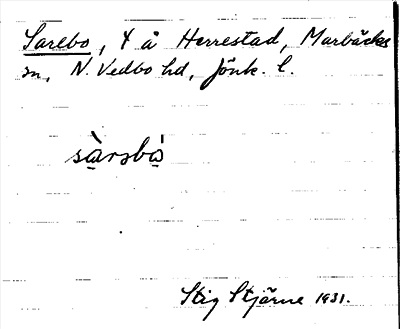 Sarebo, 4 å Herrestad, Marbäcks
sn, N. Vedbo hd, Jönk. l.
sàrsbó
Stig Stjärne 1931.